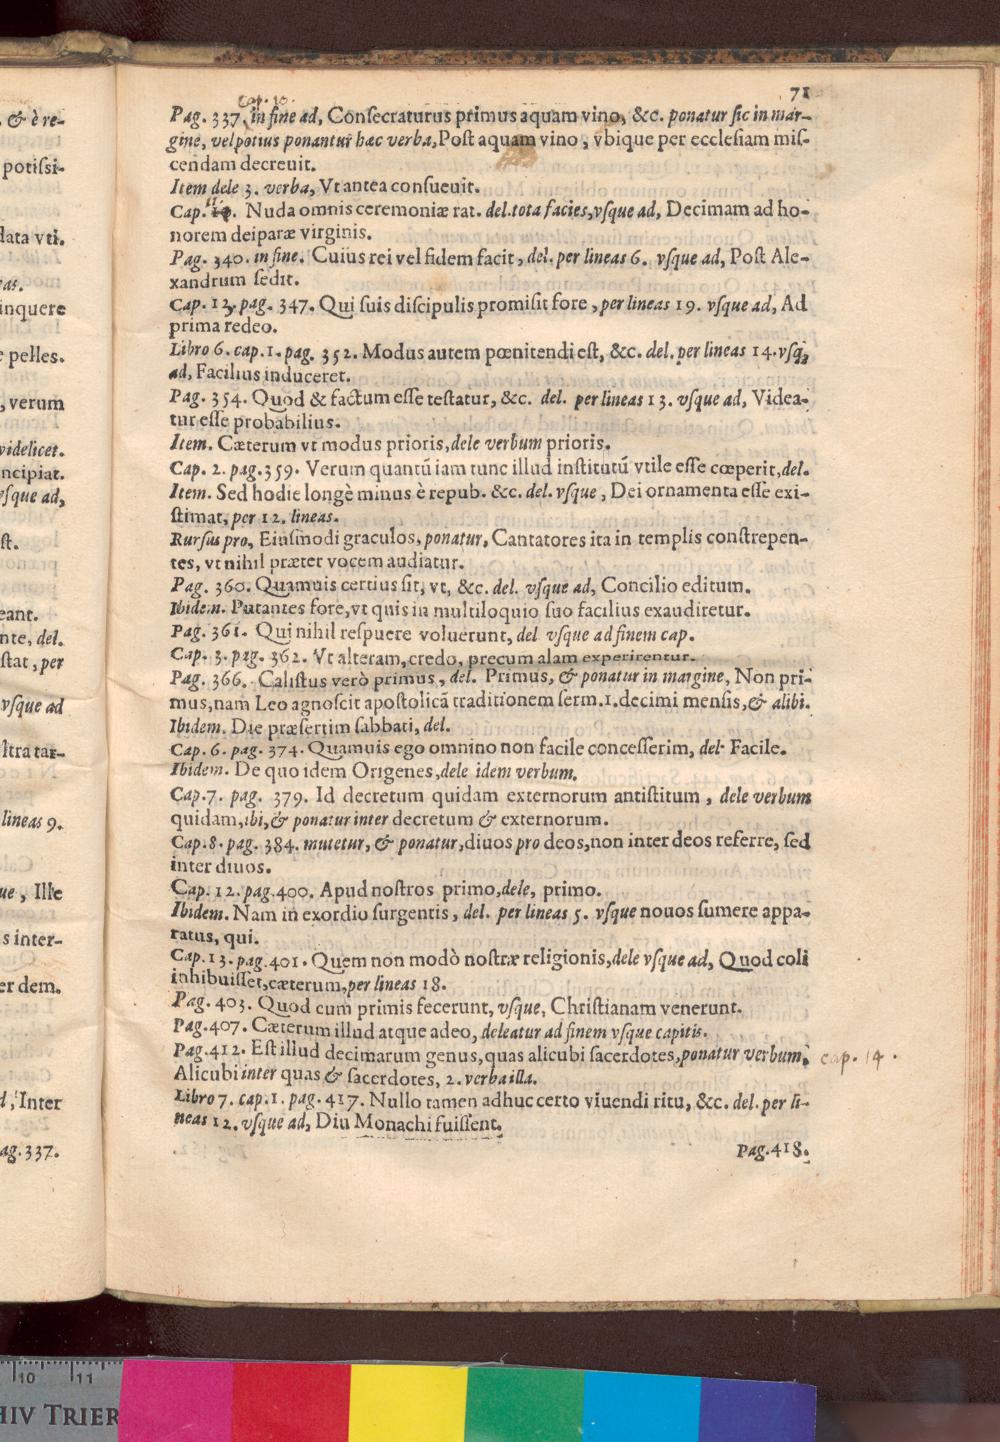 , & è re-
potissi-
data vti.
as.
inquere
e pelles.
, verum
videlicet.
ncipiat.
vsque ad,
st.
eant.
nte, del.
stat, per
vsque ad
ltra tar-
lineas 9.
ue, Ille
s inter-
er dem.
d, Inter
ag. 337.
71
cap. 10
Pag. 337. in fine ad, Consecraturus primus aquam vino, &c. ponatur sic in mar-
gine, vel potius ponantur hæc verba, Post aquam vino, vbique per ecclesiam mis-
cendam decreuit.
Item dele 3. verba, Vt antea consueuit.
Cap. 11. Nuda omnis ceremoniæ rat. del. tota facies, vsque ad, Decimam ad ho-
norem deiparæ virginis.
Pag. 340. in fine. Cuius rei vel fidem facit, del. per lineas 6. vsque ad, Post Ale-
xandrum sedit.
Cap. 12, pag. 347. Qui suis discipulis promisit fore, per lineas 19. vsque ad, Ad
prima redeo.
Libro 6. cap. 1. pag. 352. Modus autem pœnitendi est, &c. del. per lineas 14. vsq;
ad, Facilius induceret.
Pag. 354. Quod & factum esse testatur, &c. del. per lineas 13. vsque ad, Videa-
tur esse probabilius.
Item. Cæterum vt modus prioris, dele verbum prioris.
Cap. 2. pag. 359. Verum quantũ iam tunc illud institutũ vtile esse cœperit, del.
Item. Sed hodie longè minus è repub. &c. del. vsque, Dei ornamenta esse exi-
stimat, per 12. lineas.
Rursus pro, Eiusmodi graculos, ponatur, Cantatores ita in templis constrepen-
tes, vt nihil præter vocem audiatur.
Pag. 360. Quamuis certius sit, vt, &c. del. vsque ad, Concilio editum.
Ibidem. Putantes fore, vt quis in multiloquio suo facilius exaudiretur.
Pag. 361. Qui nihil respuere voluerunt, del vsque ad finem cap.
Cap. 3. pag. 362. Vt alteram, credo, precum alam experirentur.
Pag. 366. Calistus verò primus, del. Primus, & ponatur in margine, Non pri-
mus, nam Leo agnoscit apostolicã traditionem serm. 1. decimi mensis, & alibi.
Ibidem. Die præsertim sabbati, del.
Cap. 6. pag. 374. Quamuis ego omnino non facile concesserim, del. Facile.
Ibidem. De quo idem Origenes, dele idem verbum.
Cap. 7. pag. 379. Id decretum quidam externorum antistitum, dele verbum
quidam, ibi, & ponatur inter decretum & externorum.
Cap. 8. pag. 384. mutetur, & ponatur, diuos pro deos, non inter deos referre, sed
inter diuos.
Cap. 12. pag. 400. Apud nostros primo, dele, primo.
Ibidem. Nam in exordio surgentis, del. per lineas 5. vsque nouos sumere appa-
ratus, qui.
Cap. 13. pag. 401. Quem non modò nostræ religionis, dele vsque ad, Quod coli
inhibuisset, cæterum, per lineas 18.
Pag. 403. Quod cum primis fecerunt, vsque, Christianam venerunt.
Pag. 407. Cæterum illud atque adeo, deleatur ad finem vsque capitis.
Pag. 412. Est illud decimarum genus, quas alicubi sacerdotes, ponatur verbum, cap. 14.
Alicubi inter quas & sacerdotes, 2. verba illa.
Libro 7. cap. 1. pag. 417. Nullo tamen adhuc certo viuendi ritu, &c. del. per li-
neas 12. vsque ad, Diu Monachi fuissent.
Pag. 418.
10 11
HIV TRIER